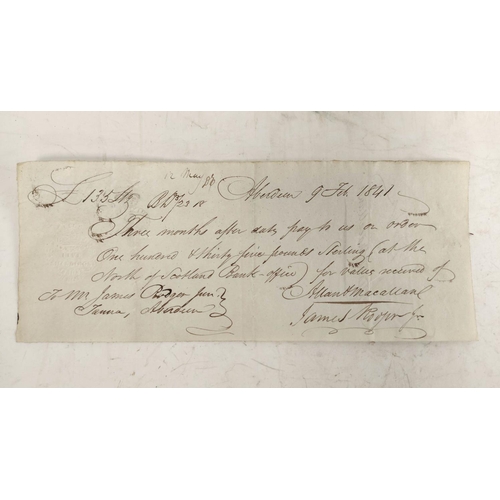 12 May
£135 Stg Aberdeen 9 Feb 1841
Three months after date pay to us or order
One hundred & thirty five pounds Sterling (at the
North of Scotland Bank office) for value received
To Mr James Rodger Junr Allan & Macallan
Aberdeen James Rodger Jr